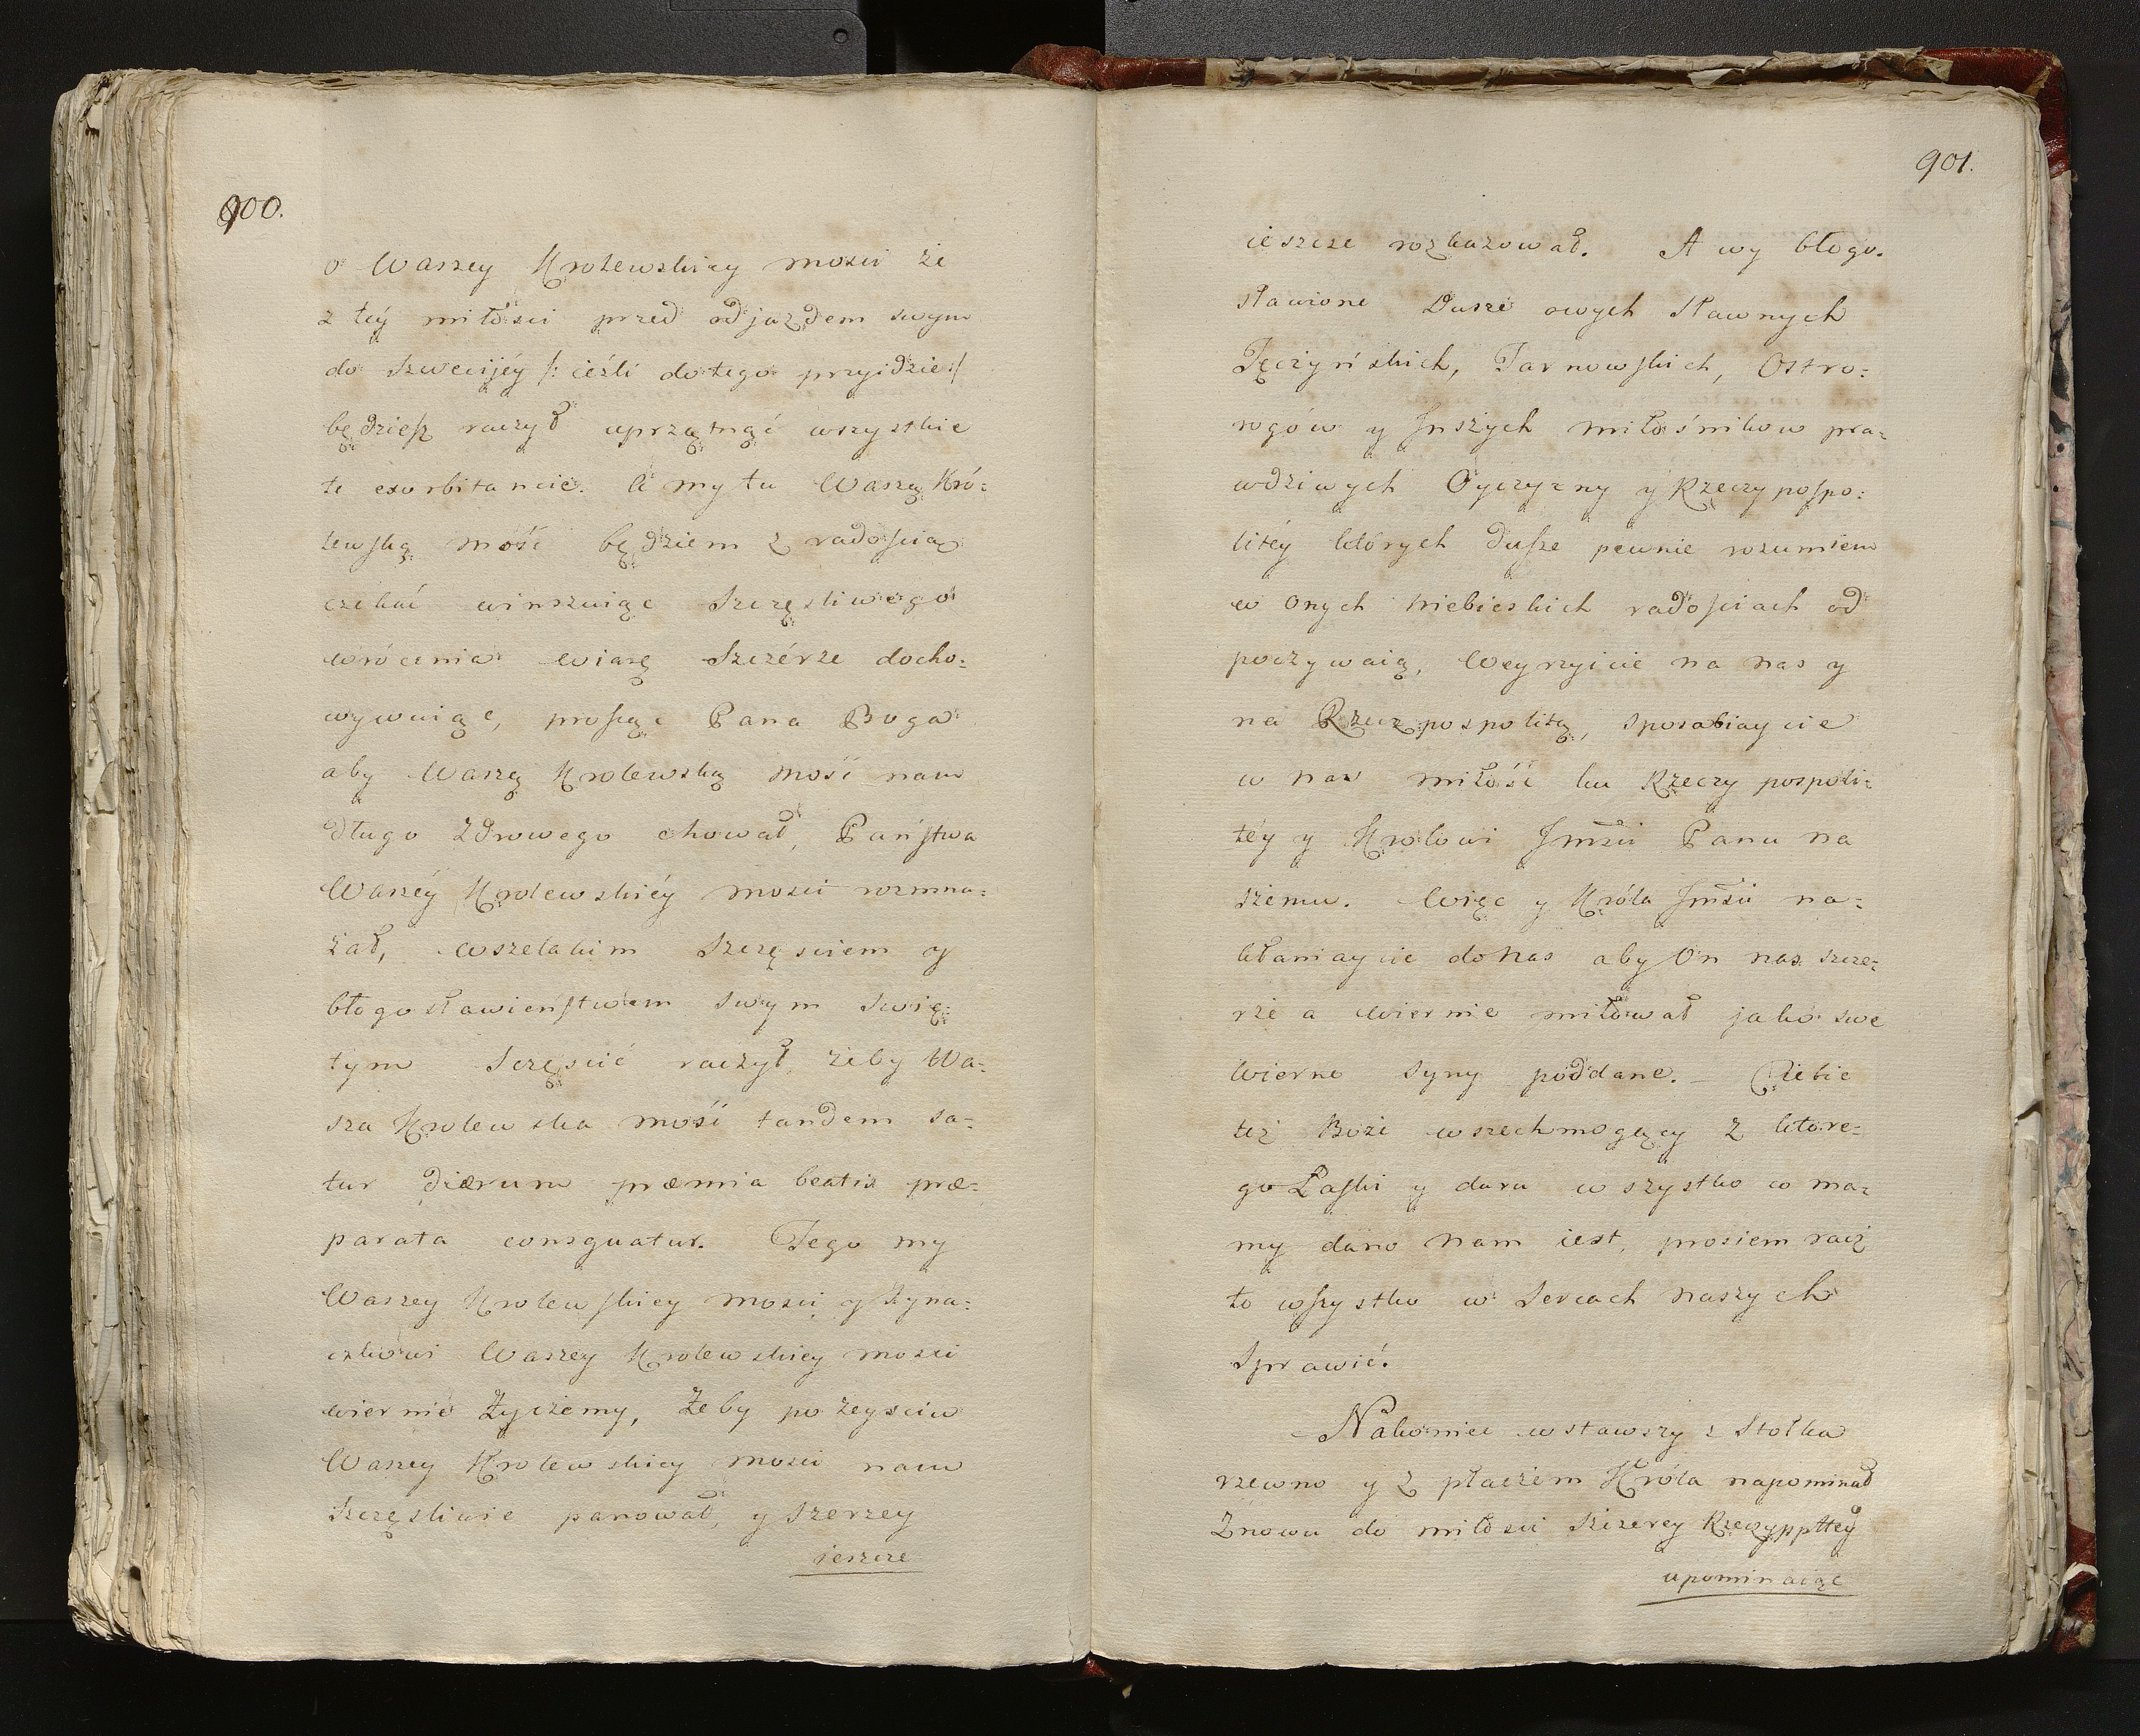 900.
o Waszey Krolewskiey mosci że
z téy miłości przed odjazdem swym
do Szwecijéy /: ieźli do tego przyidzie :/
będziesz raczył uprzątnąć wszystkie
te exorbitancie. A my tu Waszą Kró=
lewską mość będziem z radością
czekać winszuiąc Szczęsliwego
wrócenia wiarę Szczérze docho=
wywaiąc, prosząc Pana Boga
aby Waszą Krolewską mość nam
długo zdrowego chował, Państwa
Waszéy Krolewskiéy mosci rozmna=
żał, wszelakim Szczęsciem y
błogosławieństwem Swym Swię=
tym Sczęscić raczył, żeby Wa=
sza Krolewska mość tandem sa=
tur dierum præmia beatis præ=
parata consquatur. Tego my
Waszey Krolewskiey mosci y Syna=
czkowi Waszey Krolewskiey mosci
wiernie życzemy, żeby po zeysciu
Waszey Krolewskiey mosci nam
Szczęsliwie panował, y szerzey
ieszcze
901.
ieszcze rozkazował. A wy błogo.
sławione Dusze owych Sławnych
Tęczyńskich, Tarnowskich, Ostro=
rogów y Jnszych miłośnikow pra=
wdziwych Oyczyzny y Rzeczypospo=
litéy których dusze pewnie rozumiem
w onych niebieskich radościach od
poczywaią, Weyrzyicie na nas y
na Rzeczpospolitą, sposabiaycie
w nas miłość ku Rzeczy pospoli=
téy y Krolowi Jmści Panu na
szemu. Więc y Króla Jmści na=
kłaniaycie do nas aby On nas szcze=
rze a wiernie miłował jako swe
Wierne Syny poddane. – Ciebie
też Boże wszechmogący z które=
go Łaski y daru wszystko co ma=
my dano nam iest, prosiem racż
to wszystko w Sercach naszych
Sprawić.
Nakoniec wstawszy z Stołka
rzewno y z płaczem Króla napominał
Znowu do miłosci Szczerey Rzeczyppltey
upominaiąc